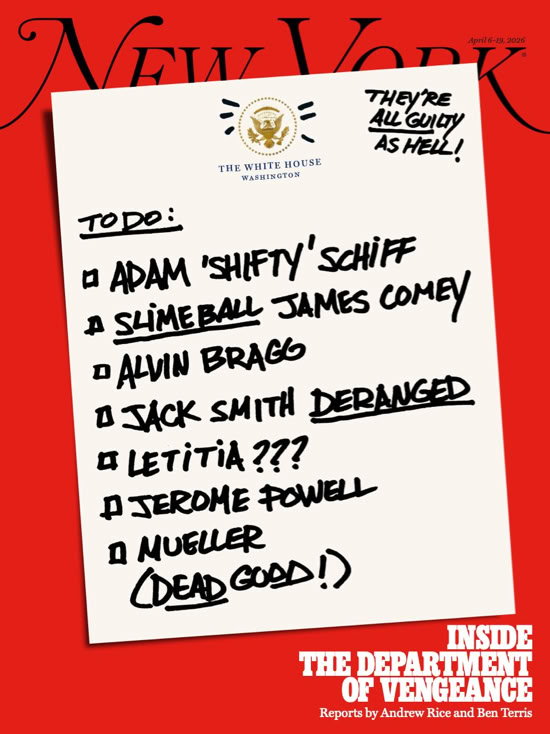 NEW YORK
April 6-19, 2026
THEY'RE
ALL GUILTY
AS HELL!
THE WHITE HOUSE
WASHINGTON
TO DO:
ADAM 'SHIFTY' SCHIFF
SLIMEBALL JAMES COMEY
ALVIN BRAGG
JACK SMITH DERANGED
LETITIA ???
JEROME POWELL
MUELLER
(DEAD GOOD!)
INSIDE
THE DEPARTMENT
OF VENGEANCE
Reports by Andrew Rice and Ben Terris